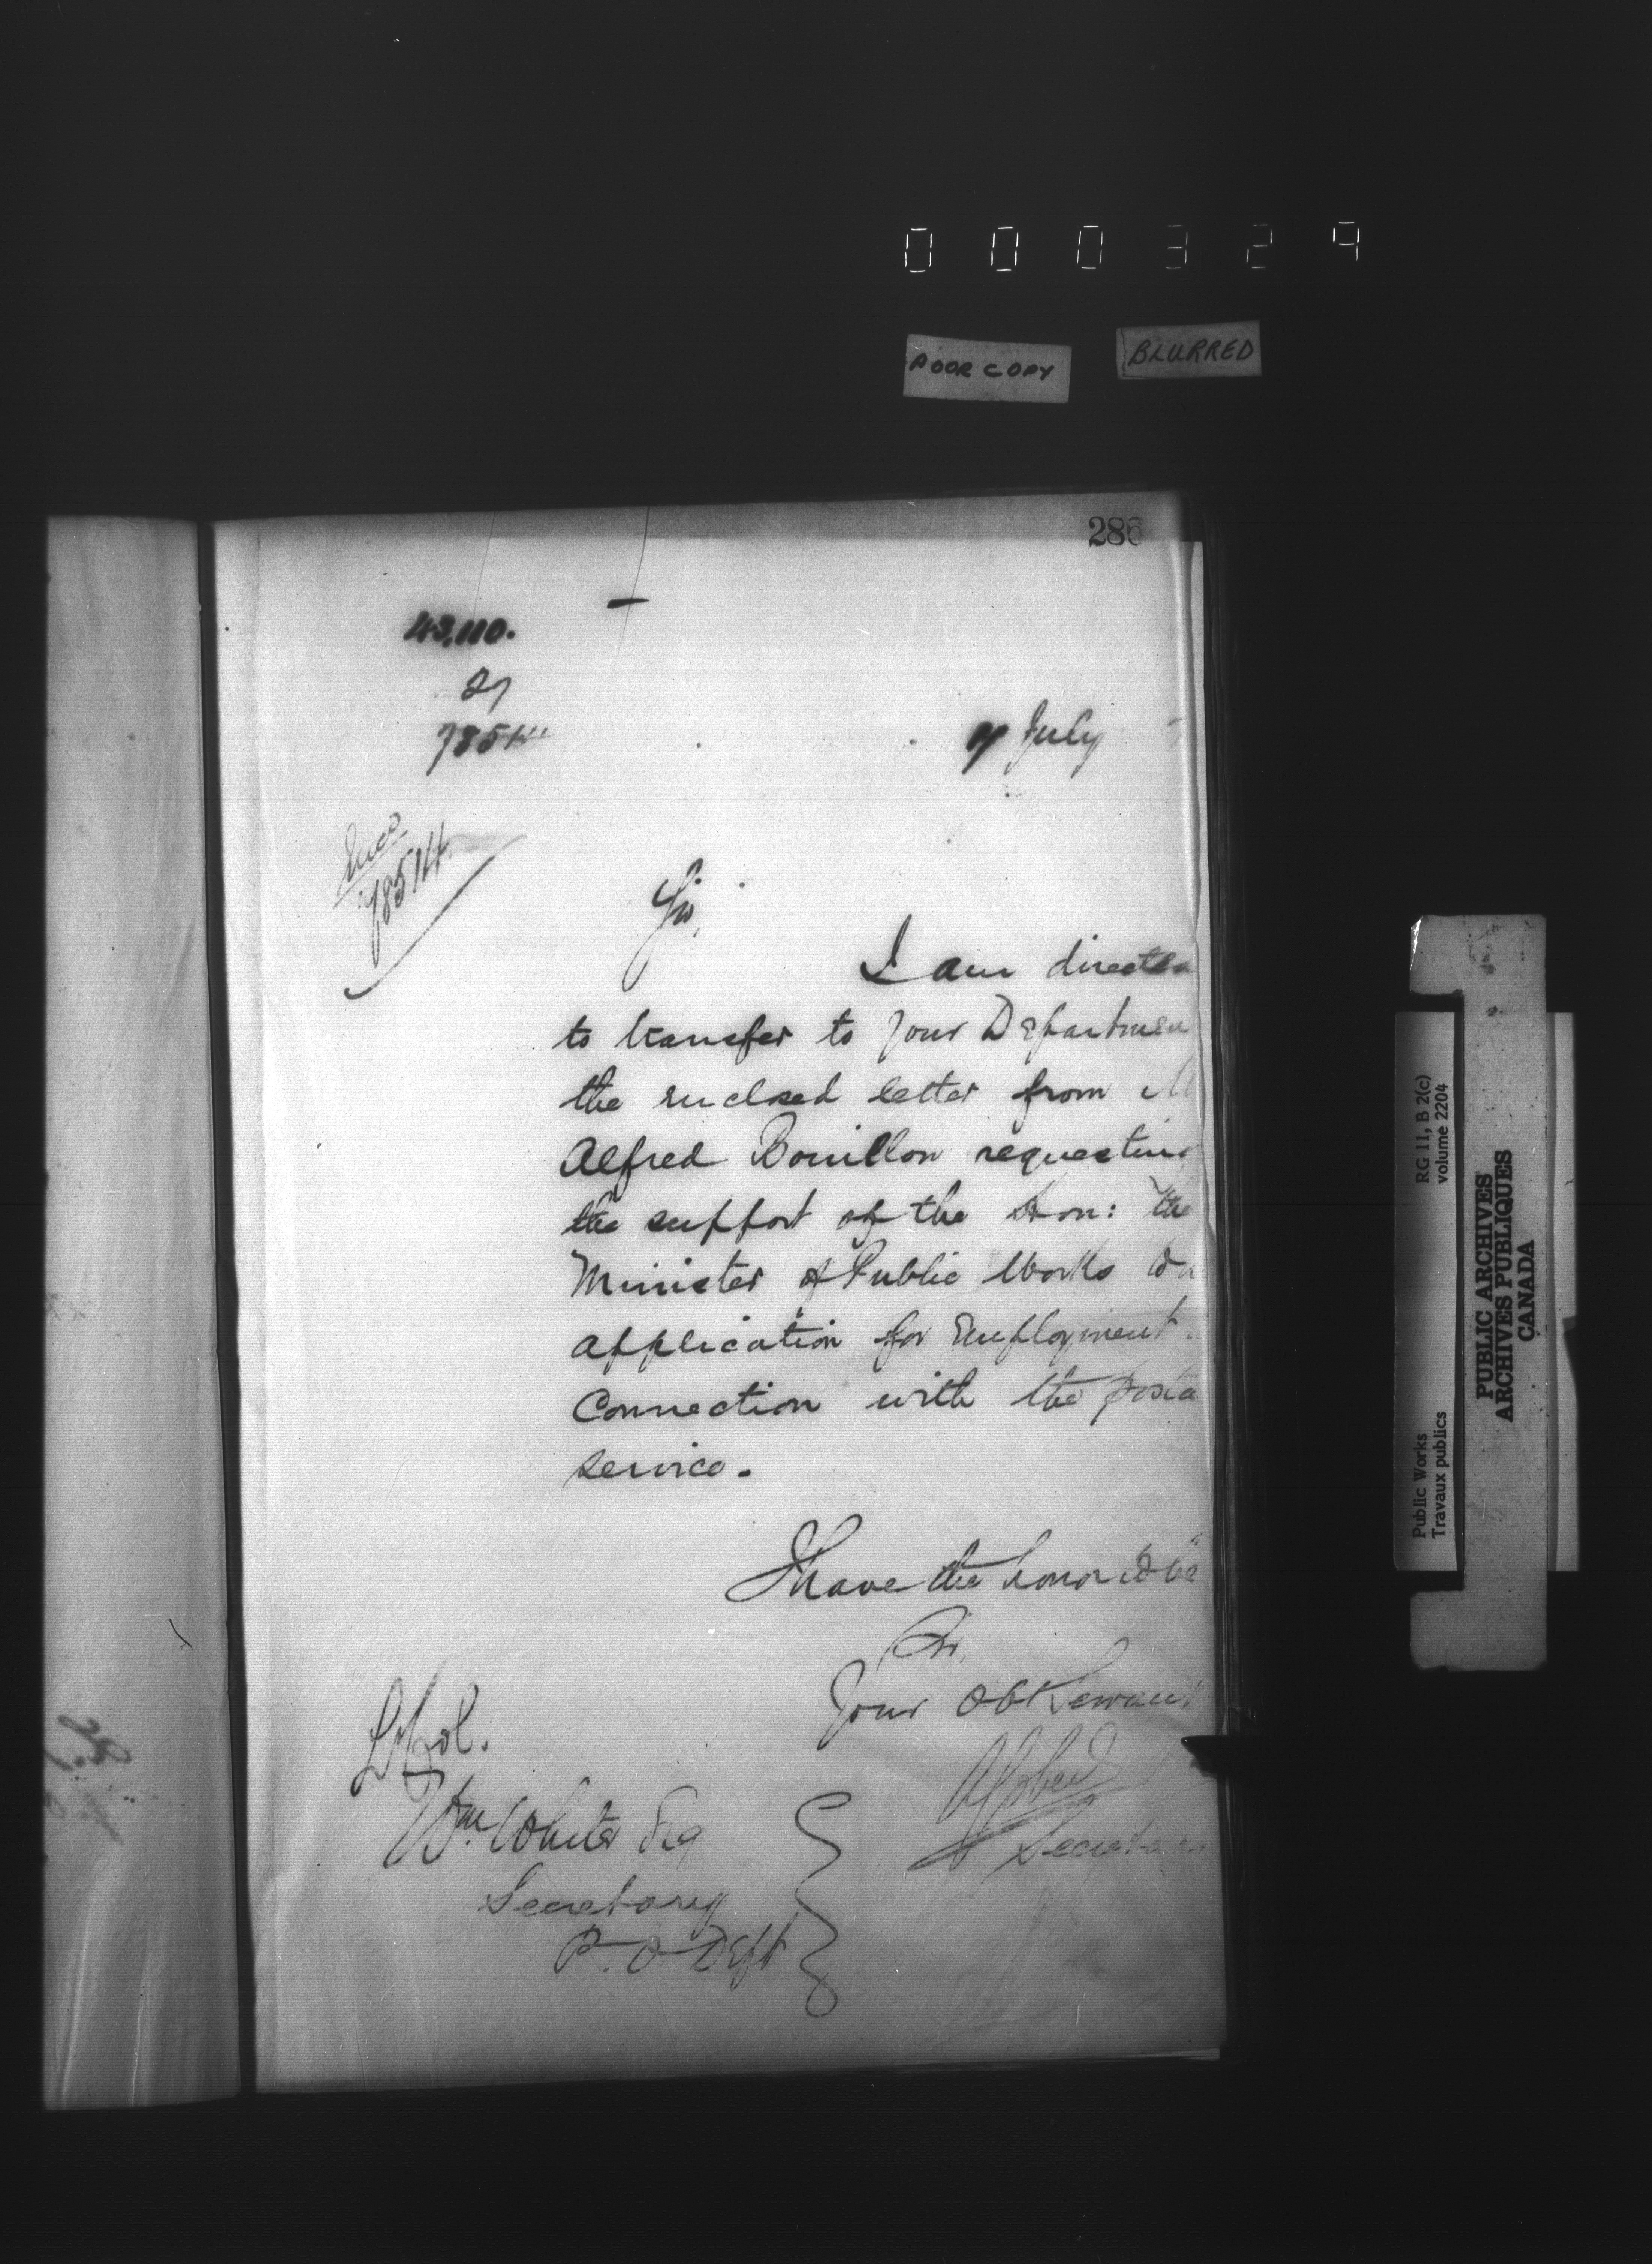 000329
POOR COPY
BLURRED
286
43,110.
27
7851
July
Encl
78514
Sir,
I am directed
to transfer to your Departmen
the enclosed letter from M
Alfred Bouillon requesting
the support of the Hon: the
Minister of Public Works to
application for Employment
Connection with the posta
service.
I have the honor to be
Sir,
Your Obt Servant
Secretary
Wm. White Esq
Secretary
P. O Dept
RG 11, B 2(c)
volume 2204
Public Works
Travaux publics
PUBLIC ARCHIVES
ARCHIVES PUBLIQUES
CANADA